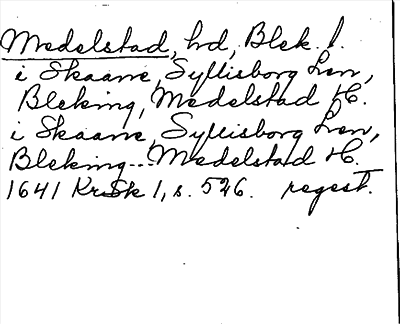 Medelstad, hd, Blek. l.
i Skaane, Syllisborg Len,
Bleking, Medelstad H.
i Skaane, Syllisborg Len,
Bleking... Medelstad H.
1641 KrSk 1, s. 526. regest.